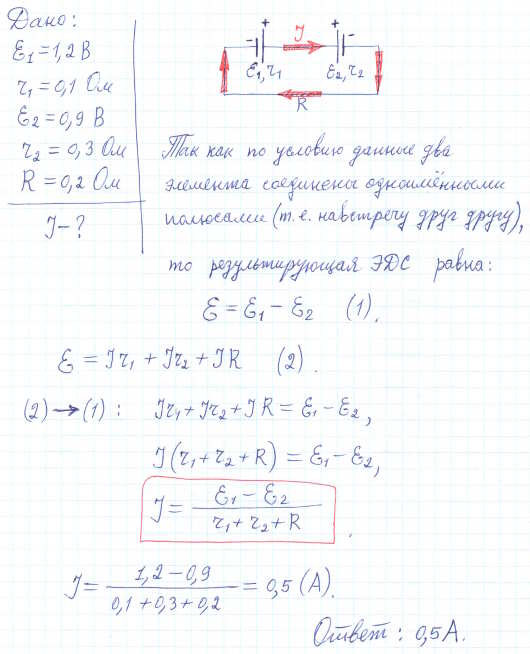 Дано:
ℰ₁=1,2 В
r₁=0,1 Ом
ℰ₂=0,9 В
r₂=0,3 Ом
R=0,2 Ом
J-?
+ +
- J -
ℰ₁,r₁ ℰ₂,r₂
R
Так как по условию данные два
элемента соединены одноимёнными
полюсами (т.е. навстречу друг другу),
то результирующая ЭДС равна:
ℰ = ℰ₁ - ℰ₂ (1).
ℰ = Jr₁ + Jr₂ + JR (2).
(2)→(1): Jr₁ + Jr₂ + JR = ℰ₁ - ℰ₂,
J(r₁ + r₂ + R) = ℰ₁ - ℰ₂,
J = (ℰ₁ - ℰ₂)/(r₁ + r₂ + R).
J = (1,2 - 0,9)/(0,1 + 0,3 + 0,2) = 0,5 (А).
Ответ: 0,5А.